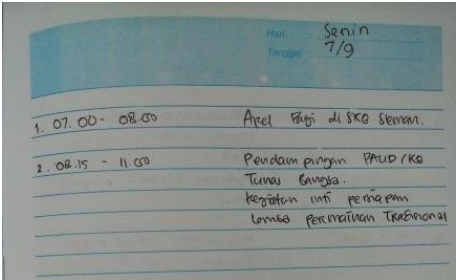 Hari Senin
Tanggal 7/9
1. 07.00 - 08.00 Apel Pagi di SKB Sleman.
2. 08.15 - 11.00 Pendampingan PAUD/KB
Tunas Bangsa.
kegiatan inti persiapan
Lomba permainan Tradisional